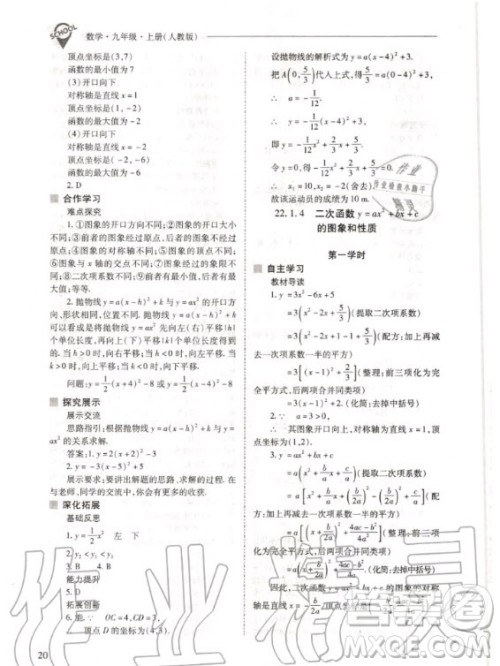 SCHOOL
数学·九年级·上册(人教版)
顶点坐标是(3,7)
函数的最小值为7
(3)开口向下
对称轴是直线x=1
顶点坐标是(1,-2)
函数的最大值为-2
(4)开口向下
对称轴是直线x=-2
顶点坐标是(-2,-6)
函数的最大值是-6
2. D
合作学习
难点探究
1. ①图象的开口方向不同;②图象的开口大小
不同;③前者的图象经过原点,后者的图象不经过原
点;④图象与x轴的交点不同;⑤图象经过的象限不
同;⑥二次项系数不同;⑦对称轴不同;⑧顶点不同;
⑨最值不同;等等.
2. 抛物线y=a(x-h)²+k与y=ax²的开口方
向,形状相同,位置不同. 抛物线y=a(x-h)²+k
可以看成是抛物线y=ax²先向左(右)平移|h|个单
位长度,再向上(下)平移|k|个单位长度得到
的. 当h>0时,向右平移;当h<0时,向左平移;当
k>0时,向上平移;当k<0时,向下平移.
问题:y=1/2(x+4)²-8或y=1/2(x-4)²-8
探究展示
展示交流
思路指引:根据抛物线y=a(x-h)²+k与y=
ax²的关系求解.
答案:1. y=(x+2)²+2
2. y=-3(x+5)²+5
展示要求:要讲出解题的思路、求解的过程,在
与老师、同学的交流中,你有哪些收获?
深化拓展
基础反思
1. y=1/2x² 左 下
3. B 4. B
能力提升
5. D
拓展创新
6. 能. ∵ OC=4,CD=3,
顶点D的坐标为(4,3)
20
设抛物线的解析式为y=a(x-4)²+3,
把A(0,5/3)代入上式,得5/3=a(0-4)²+3,
∴ a=-1/12.
∴ y=-1/12(x-4)²+3,
∴ y=-1/12x²+2/3x+5/3.
故该运动员的成绩为10 m.
22.1.4 二次函数y=ax²+bx+c
的图象和性质
第一学时
自主学习
教材导读
1. y=3x²-6x+5
=3(x²-2x+5/3)(提取二次项系数)
=3(x²-2x+1-1+5/3)(配方:加上再减去
一次项系数一半的平方)
=3[(x-1)²+2/3](整理:前三项化为完
全平方式,后两项合并同类项)
=3(x-1)²+2.(化简:去掉中括号)
2. ∵ a=3>0,
∴ 其图象开口向上,对称轴为直线x=1,
顶点坐标为(1,2).
3. y=ax²+bx+c
=a(x²+b/a x+c/a)(提取二次项系数)
=a[x²+b/a x+(b/2a)²-(b/2a)²+c/a](配
方:加上再减去一次项系数一半的平方)
=a[(x+b/2a)²+(4ac-b²)/4a²](整理:前三项化为
完全平方式,后两项合并同类项)
作业精灵